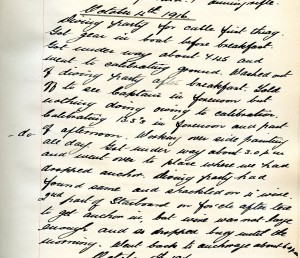 October 4th 1916.
Diving party for cable first thing.
Get gear in boat before breakfast.
Get under way about 7.45 and
went to calibrating ground. Washed out
of diving party after breakfast. Told
off to see Captain in forenoon but
nothing doing owing to calibration.
Calibrating in forenoon and part
-do- of afternoon. Working over side painting
all day. Get under way about 2.0 p.m.
and went over to place where we had
dropped anchor. Diving party had
found same and shackled on wire.
part of Starboard on fo'c'sle after tea
to get anchor in, but wire was not large
enough and so dropped buoy until the
morning. Went back to anchorage about